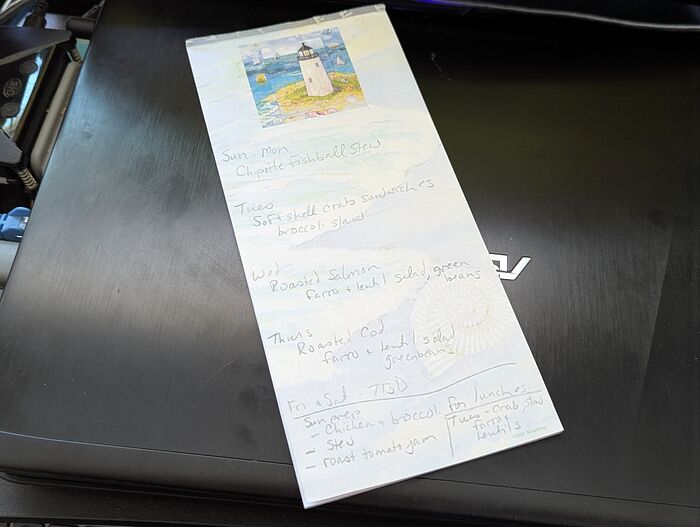 Sun - Mon
Chipotle Fishball Stew
Tues
Softshell crab sandwiches
broccoli slaw
Wed
Roasted Salmon
Farro + lentil salad, green
beans
Thurs
Roasted Cod
farro + lentil salad
greenbeans
Fri + Sat - TBD
Sun prep
- Chicken + broccoli for lunches
- Stew
- roast tomato jam
Tues - Crab, slaw
farro +
lentils